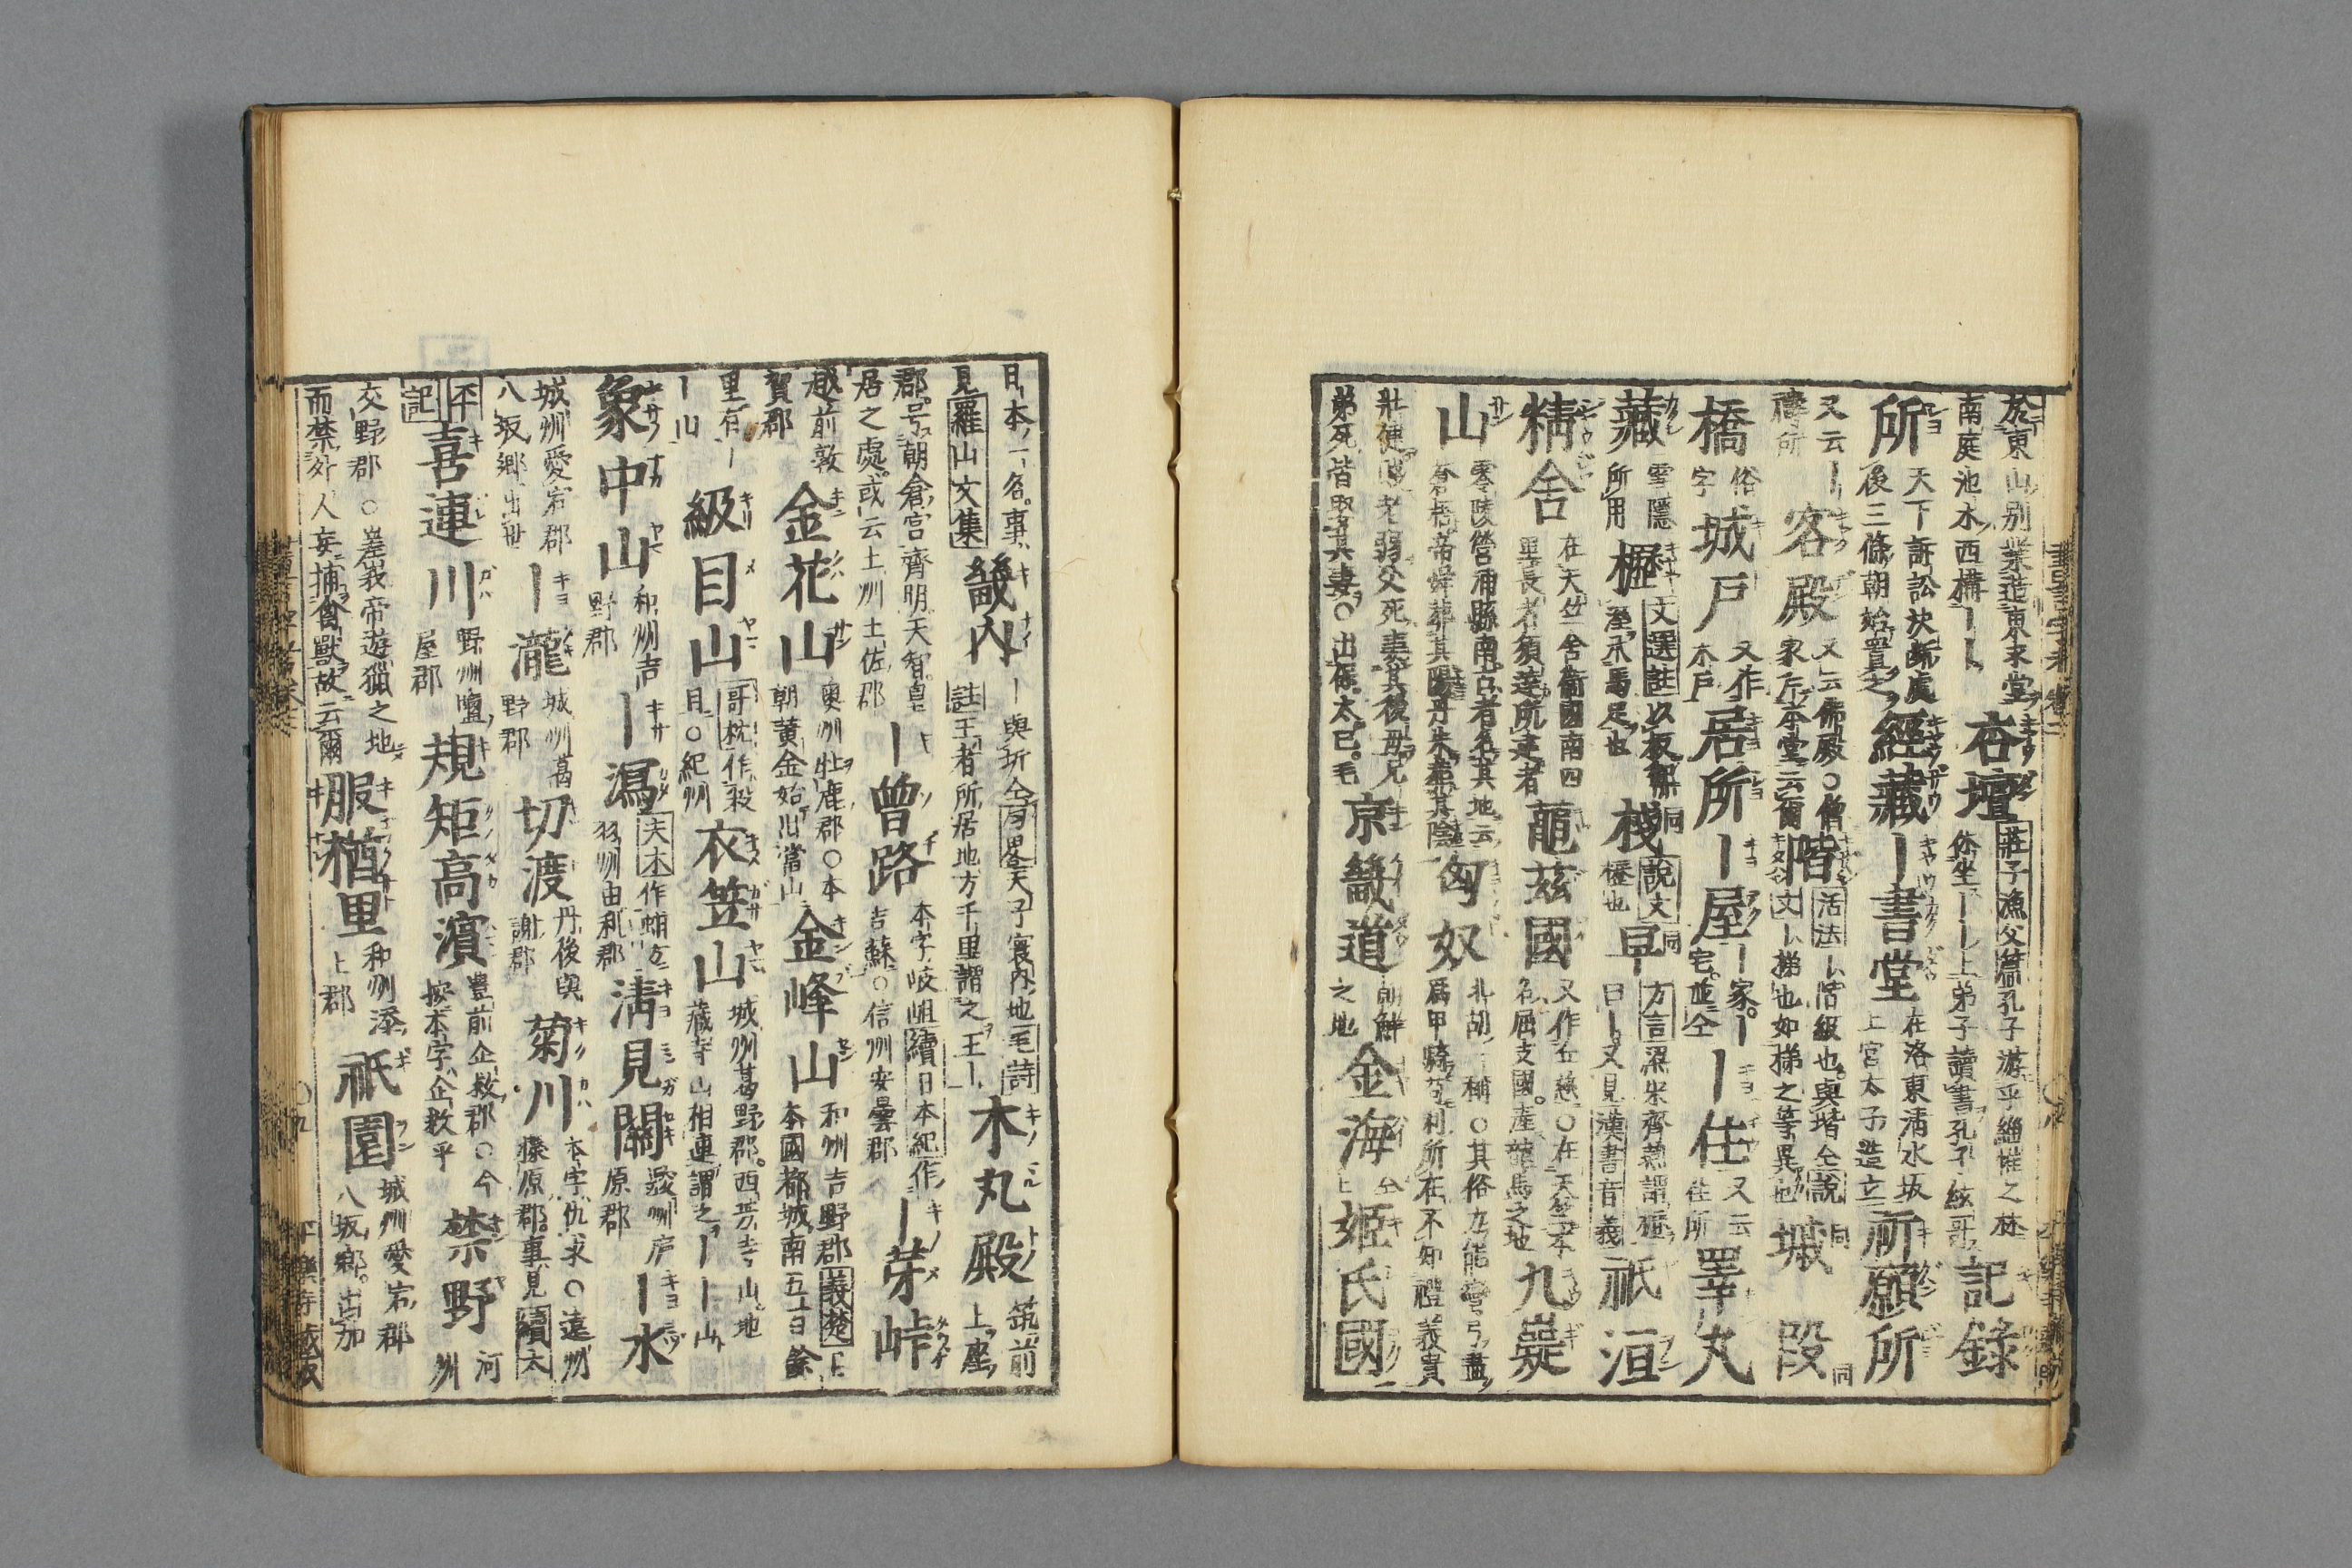 於東山別業造東求堂
南庭池水西構｜｜ 杏壇 莊子漁父篇孔子游乎緇帷之林
休坐｜｜上弟子讀書孔子絃哥 記錄
所 天下訴訟決斷處
後三條朝始置之 經藏 ｜書堂 在洛東清水坂
上宮太子造立 祈願所
又云｜
禱所 客殿 又云佛殿○僧
家斥本堂云爾 階 活法｜階級也與堦仝說
文｜梯也如梯之等異也 城同 段同
橋 俗
字 城戸 又作
木戸 居所 ｜屋｜家｜
宅並仝 ｜住 又云
住所 睪丸
藏 雪隱
所用 櫪 文選註以板
承馬足也 棧同 說文
櫪也 皁同 方言梁宋齊燕謂櫪
曰｜又見漢書音義 祇洹
精舍 在天竺舍衞國南四
里長者須達所建者 龜茲國 又作丘慈○在天竺本
名屈支國產龍馬之地 九嶷
山 零陵營浦縣南古者名其地云
蒼梧帝舜葬其陽丹朱葬其陰 匈奴 北胡｜稱○其俗力能彎弓盡
爲甲騎苟利所在不知禮義貴
壯健賤老弱父死妻其後母兄
弟死皆娶其妻○出候太已毛 京畿道 朝鮮
之地 金海 仝
上 姬氏國
日本一名事
見羅山文集 畿内 ｜與圻仝周畧天子寰内地毛詩
註王者所居地方千里謂之王｜ 木丸殿 筑前
上座
郡号朝倉宮齊明天智皇
居之處或云土州土佐郡 ｜曾路 本字岐岨續日本紀作
吉蘇○信州安曇郡 ｜芽峠
越前敦
賀郡 金花山 奥州牡鹿郡○本
朝黄金始出當山 金峰山 和州吉野郡義楚曰
本國都城南五百餘
里有｜
｜山 級目山 哥枕作殺
目○紀州 衣笠山 城州葛野郡西芳寺山地
藏寺山相連謂之｜｜山
象中山 和州吉
野郡 ｜潟 夫木作蚶方
羽州由利郡 清見關 駿州庐
原郡 ｜水
城州愛宕郡
八坂郷出世 ｜瀧 城州葛
野郡 切渡 丹後與
謝郡 菊川 本字仇求○遠州
榛原郡事見續太
平
記 喜連川 野州鹽
屋郡 規矩高濱 豊前企救郡○今
按本字企救乎 禁野 河
州
交野郡○嵯峩帝遊獵之地
而禁外人妄捕禽獸故云爾 服楢里 和州添
上郡 祇園 城州愛宕郡
八坂郷古加